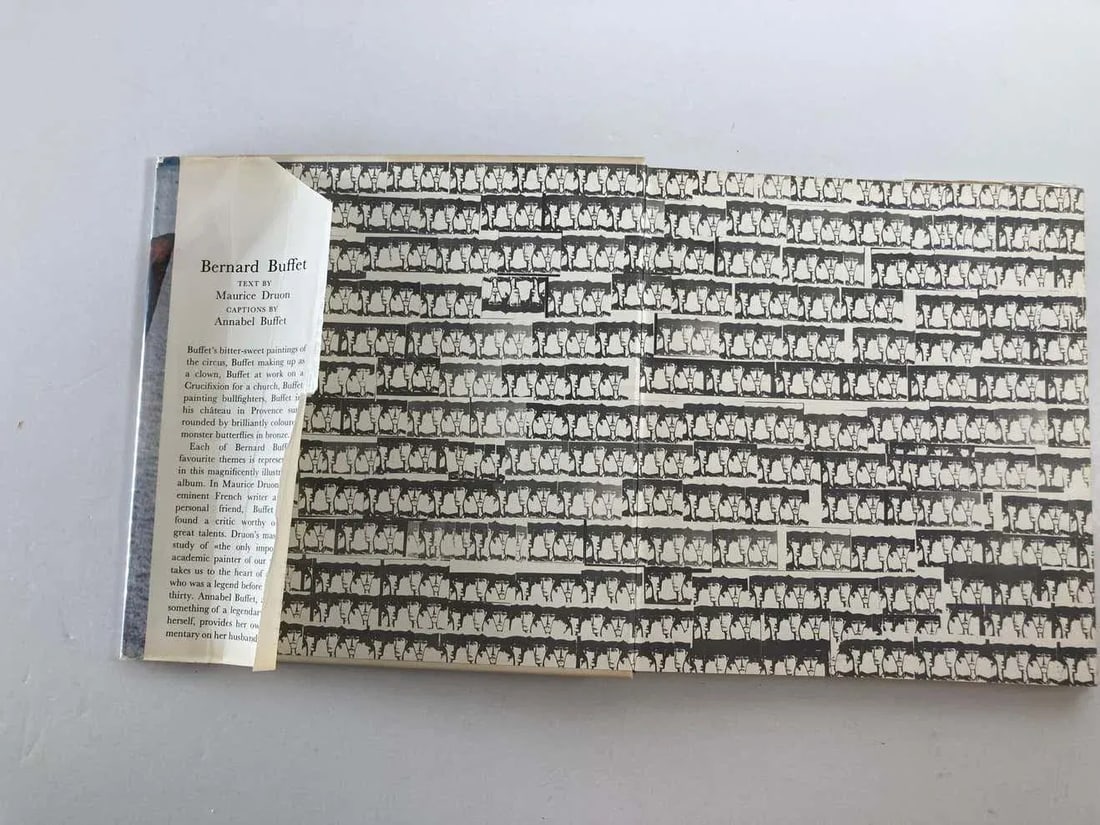 Bernard Buffet
TEXT BY
Maurice Druon
CAPTIONS BY
Annabel Buffet
Buffet's bitter-sweet paintings of
the circus, Buffet making up as
a clown, Buffet at work on a
Crucifixion for a church, Buffet
painting bullfighters, Buffet in
his château in Provence sur
rounded by brilliantly coloure
monster butterflies in bronze.
Each of Bernard Buff
favourite themes is represen
in this magnificently illustr
album. In Maurice Druon
eminent French writer a
personal friend, Buffet
found a critic worthy o
great talents. Druon's mas
study of «the only impo
academic painter of our
takes us to the heart of
who was a legend before
thirty. Annabel Buffet,
something of a legendar
herself, provides her ow
mentary on her husband